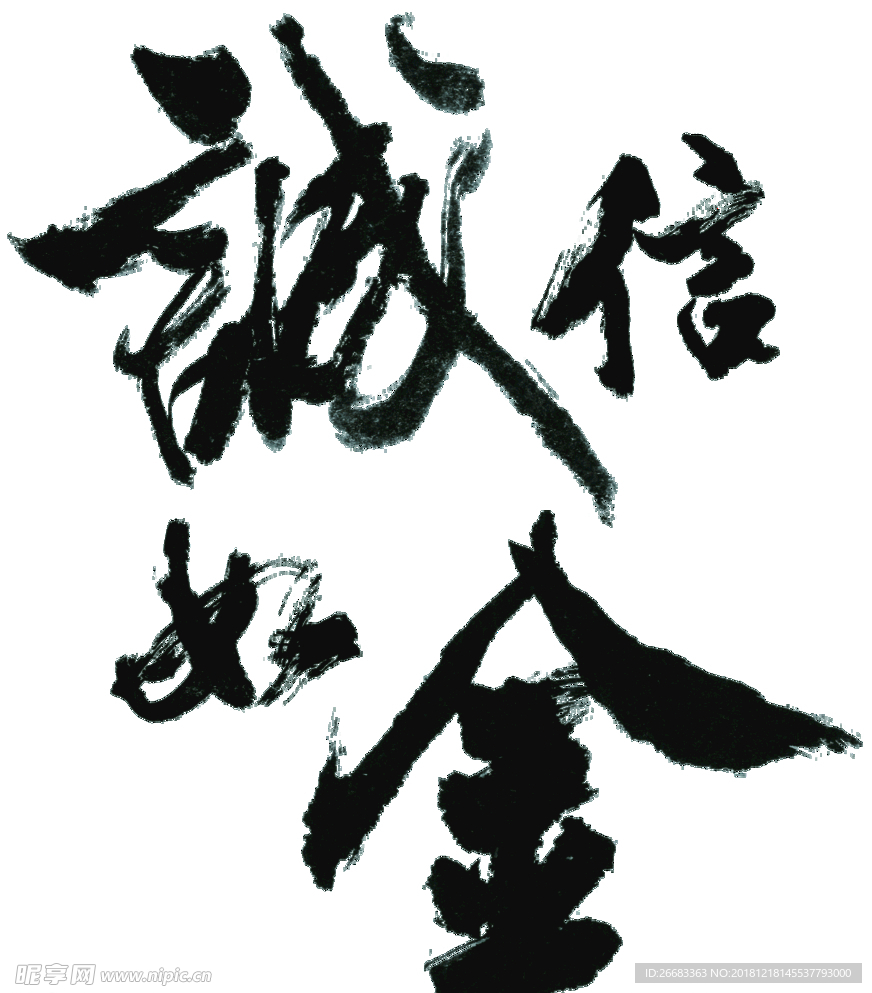 誠信
如金
昵享网 www.nipic.cn
ID:26683363 NO:20181218145537793000